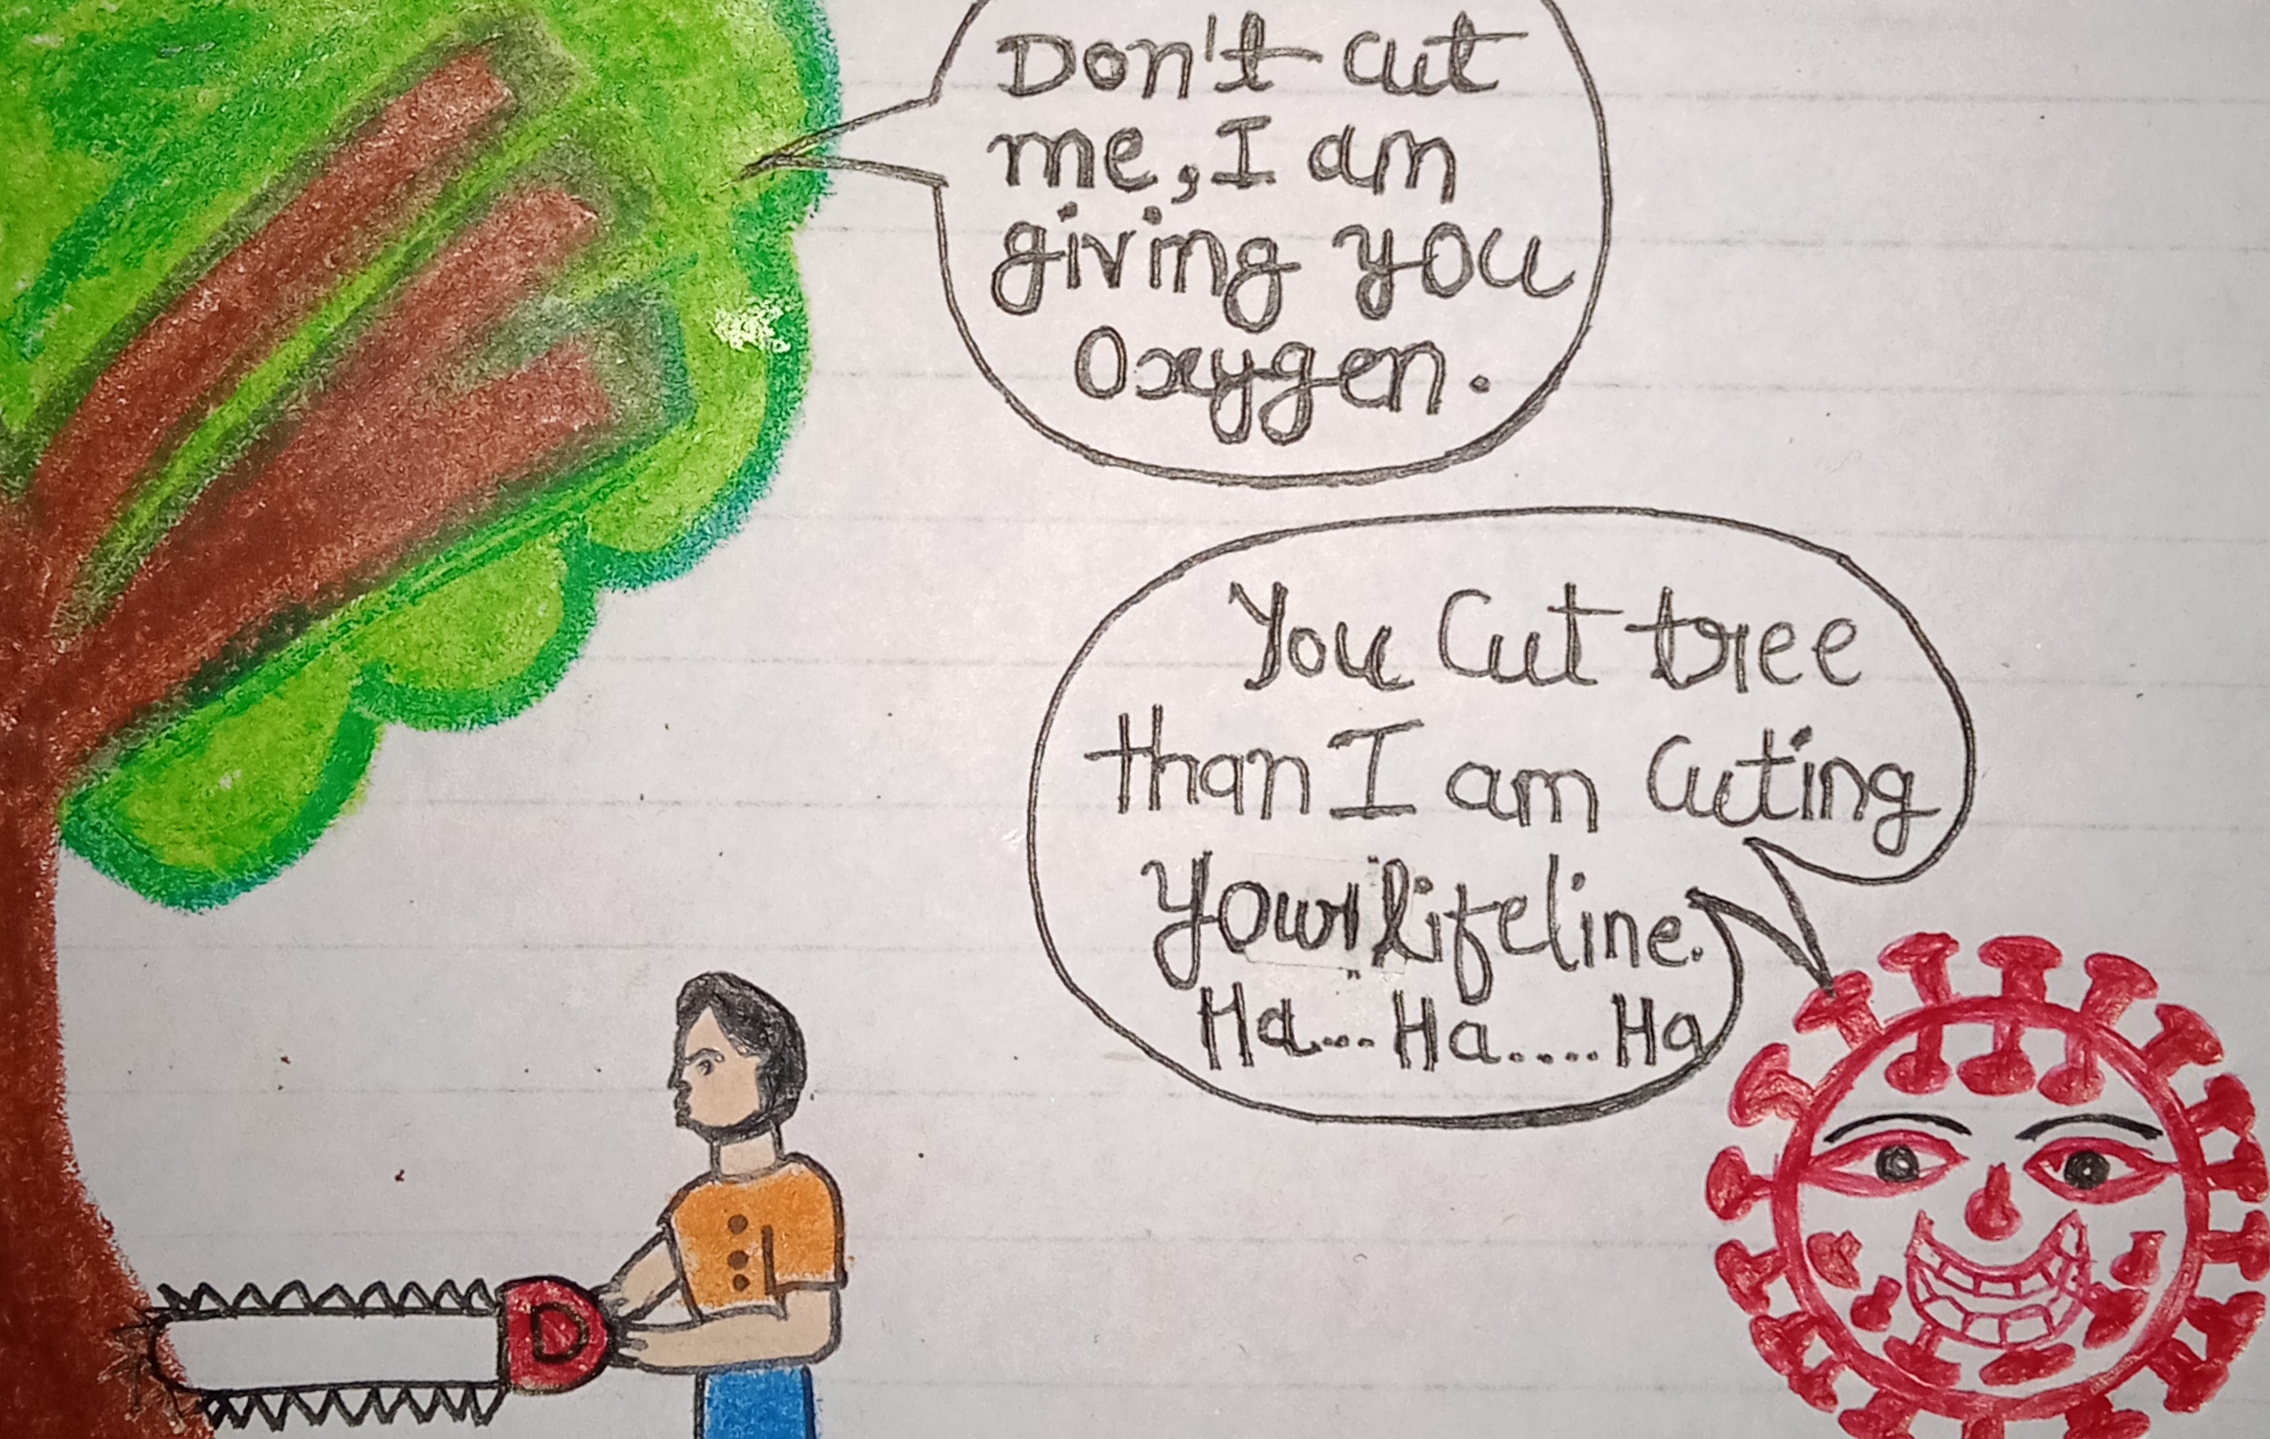 Don't cut
me, I am
giving you
Oxygen.
You Cut tree
than I am Cuting
Your lifeline.
Ha... Ha..... Ha
D